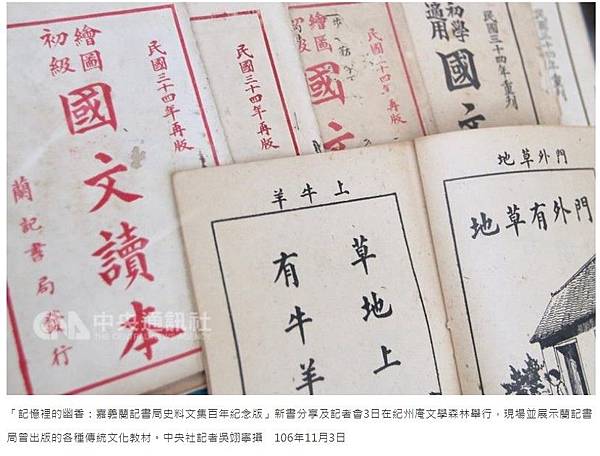 民國三十四年再版
繪圖
初級
國文讀本
蘭記書局發行
民國三十四年再版
民國三十四年再版
國文
民國三十四年重刊
初學
適用
國文
門外草地
門外有草地
上牛羊
草地上
有牛羊
CNA 中央通訊社
「記憶裡的幽香：嘉義蘭記書局史料文集百年紀念版」新書分享及記者會3日在紀州庵文學森林舉行，現場並展示蘭記書
局曾出版的各種傳統文化教材。中央社記者吳翊寧攝　106年11月3日